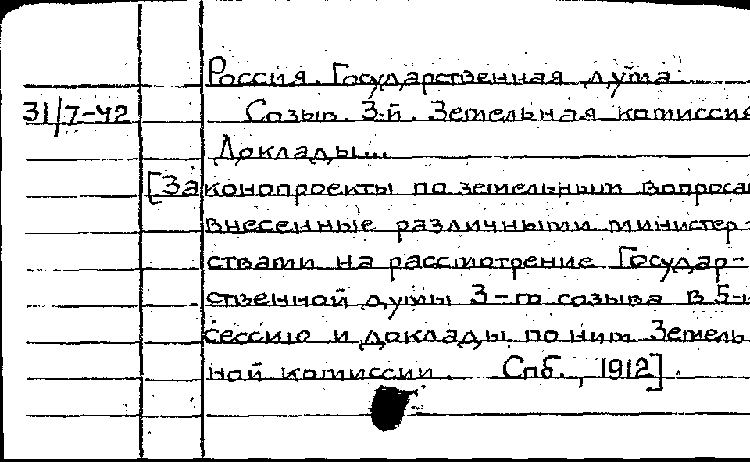 Россия. Государственная дума.
31/7-42 Созыв 3-й. Земельная комиссия
Доклады...
[Законопроекты по земельным вопросам
внесенные различными министер-
ствами на рассмотрение Государ-
ственной думы 3-го созыва в 5-ю
сессию и доклады по ним Земель
ной комиссии. Спб., 1912].